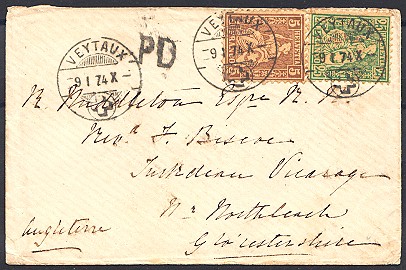 VEYTAUX
9 I 74 X
PD
VEYTAUX
9 I 74 X
5 5
VEYTAUX
9 I 74 X
R. Middleton Esqre R.N.
Revd. F. Biscoe
Turkdean Vicarage
Nr. Northleach
Gloucestershire
Angleterre